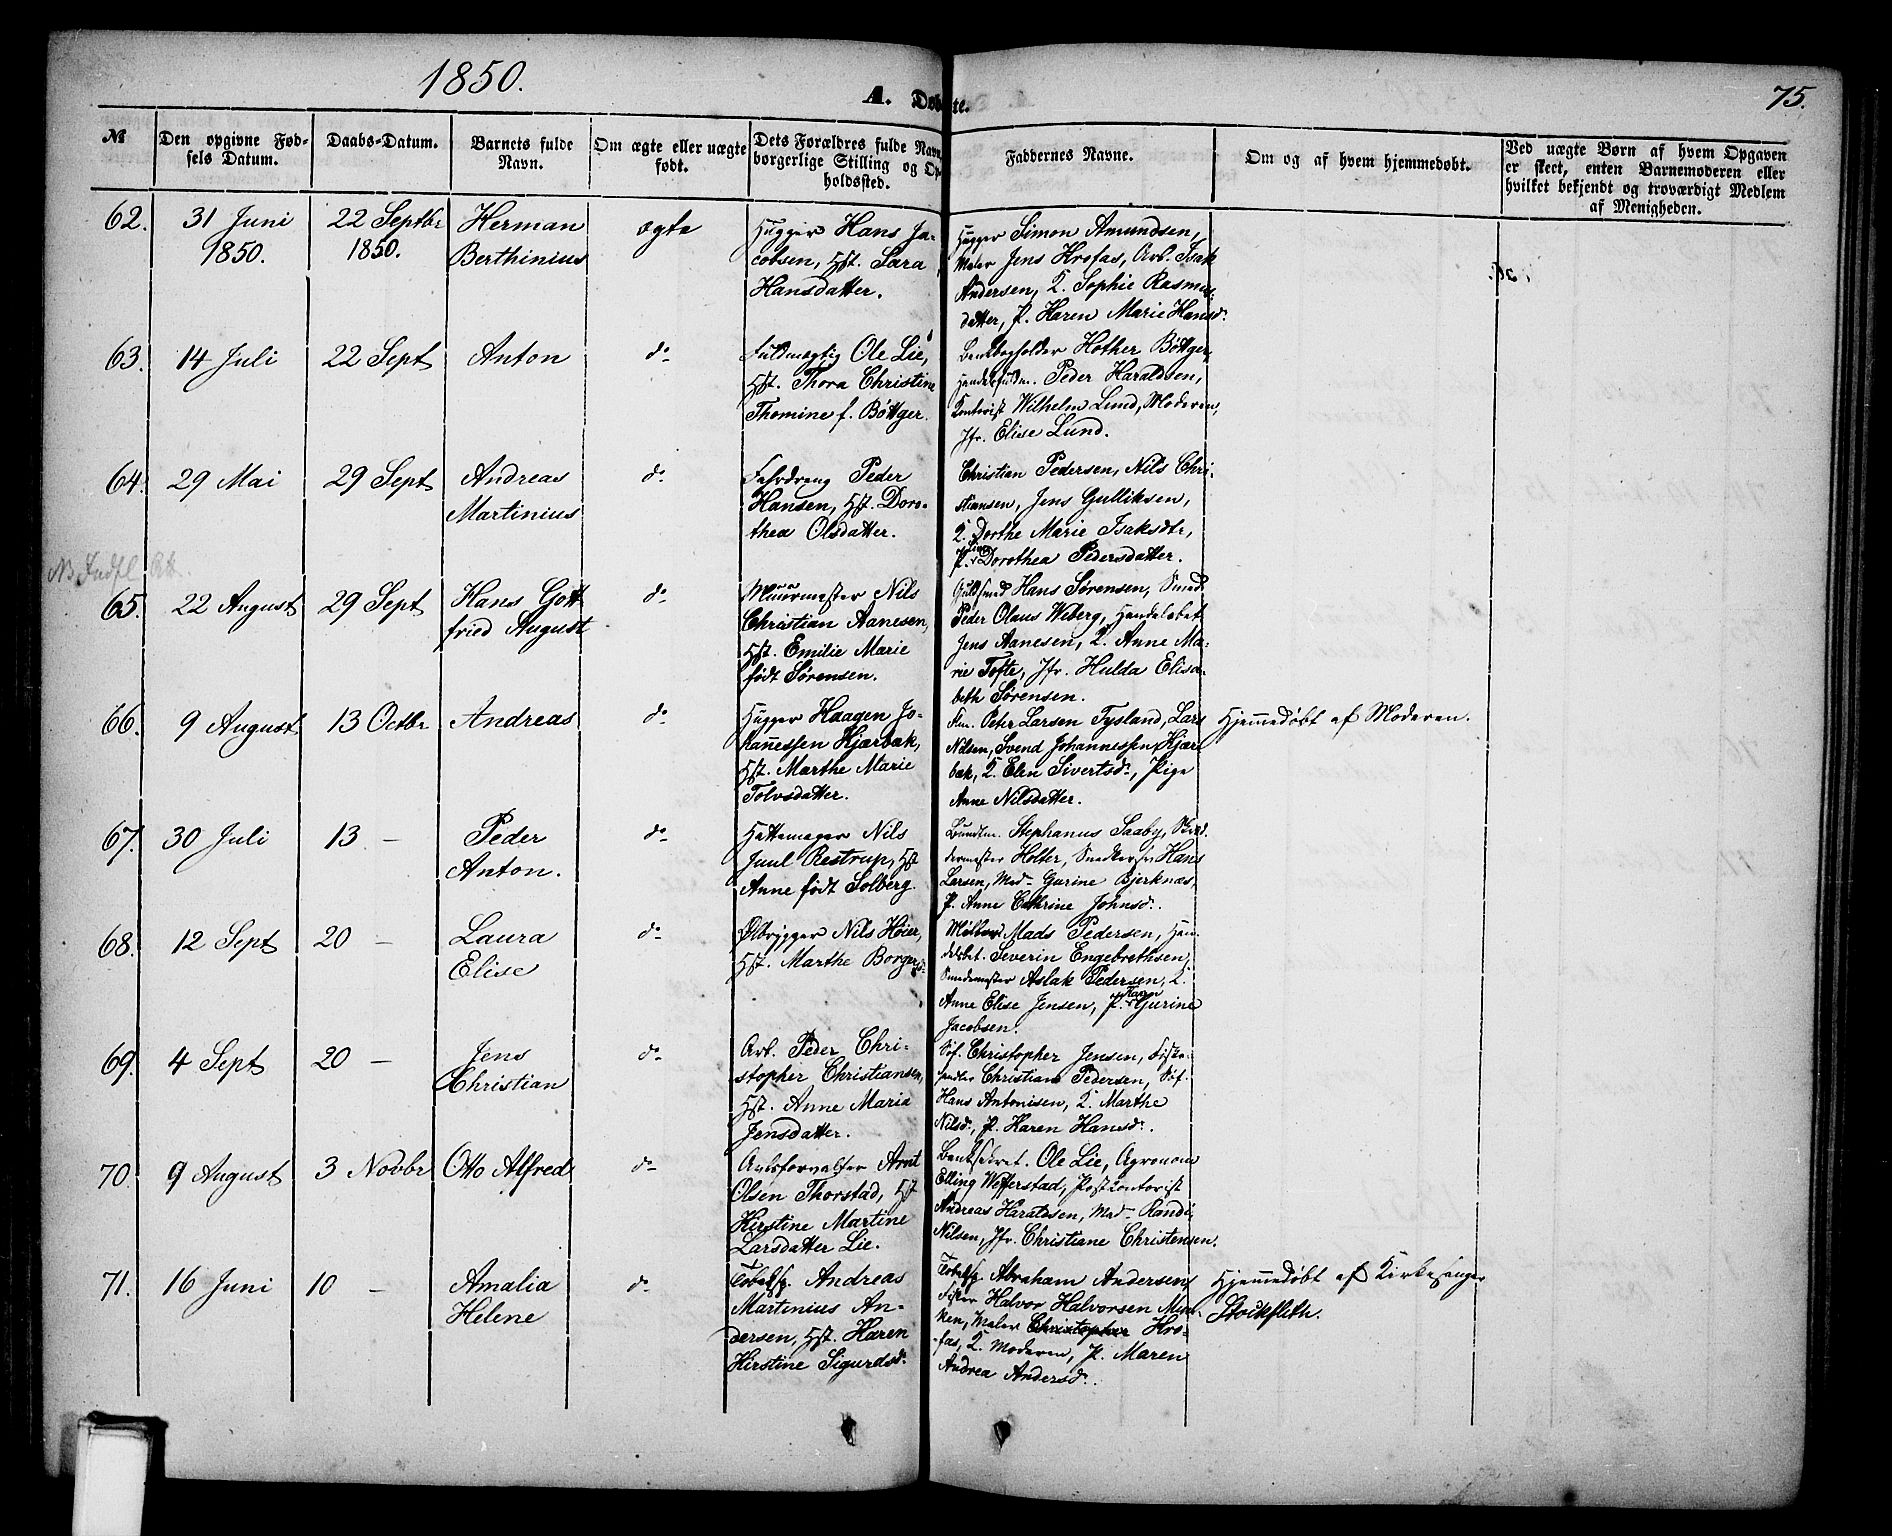 1850.
A. Døbte.
75.
№
Den opgivne Fød-
sels Datum.
Daabs-Datum.
Barnets fulde
Navn.
Om ægte eller uægte
født.
Dets Forældres fulde Navn,
borgerlige Stilling og Op-
holdssted.
Faddernes Navne.
Om og af hvem hjemmedøbt.
Ved uægte Børn af hvem Opgaven
er skeet, enten Barnemoderen eller
hvilket bekjendt og troværdigt Medlem
af Menigheden.
62.
31 Juni
1850.
22 Septbr
1850.
Herman
Berthinius
ægte
Hugger Hans Ja-
cobsen, Hst. Sara
Hansdatter.
Hugger Simon Amundsen,
Maler Jens Krefas, Arb. Isak
Andersen, K. Sophie Rasmus-
datter, P. Karen Marie Hansd.
63.
14 Juli
22 Sept
Anton
do
Fuldmægtig Ole Lie,
Hst. Thora Christine
Thomine f. Bøttger.
Bankbogholder Hother Bøttger,
Handelsfuldm. Peder Haraldsen,
Kontorist Wilhelm Lund, Moderen,
Jfr. Elise Lund.
64.
29 Mai
29 Sept
Andreas
Martinius
do
Peder
Hansen, Hst. Doro-
thea Olsdatter.
Christian Pedersen, Nils Chri-
stiansen, Jens Gulliksen,
K. Dorthe Marie Isaksdtr,
P. Dorothea Pedersdatter.
65.
22 August
29 Sept
Hans Gott
fried August
do
Muurmester Nils
Christian Aanesen,
Hst. Emilie Marie
født Sørensen.
Guldsmed Hans Sørensen, Smed
Peder Olaus Wiberg, Handelsbet.
Jens Aanesen, K. Anne Ma-
rie Tofte, Jfr. Hulda Elisa-
beth Sørensen.
66.
9 August
13 Octbr
Andreas
do
Hugger Haagen Jo-
hannessen Kjærbæk,
Hst. Marthe Marie
Tolvsdatter.
Peter Larsen Tysland, Lars
Nilsen, Svend Johannessen Kjær-
bæk, K. Elen Sivertsd., Pige
Anne Nilsdatter.
Hjemmedøbt af Moderen.
67.
30 Juli
13 —
Peder
Anton.
do
Hattemager Nils
Juul Restrup, Hst
Anne født Solberg.
Bundtm. Stephanus Saaby, Skræd-
dermester Holter, Hans
Larsen, Mad- Gurine Bjerknæs,
P. Anne Cathrine Johnsd.
68.
12 Sept
20 —
Laura
Elise
do
Ølbrygger Nils Høier,
Hst. Marthe Borgersd.
Mads Pedersen, Han-
delsbet. Severin Engebrethsen,
Smedemester Aslak Pedersen, K.
Anne Elise Jensen, P. Karen Gurine
Jacobsen.
69.
4 Sept
20 —
Jens
Christian
do
Arb. Peder Chri-
stopher Christiansen,
Hst. Anne Maria
Jensdatter.
Søf. Christopher Jensen, Fiske-
handler Christian Pedersen, Søf.
Hans Antonisen, K. Marthe
Nilsd., P. Karen Hansd.
70.
9 August
3 Novbr
Otto Alfred
do
Avlsforvalter Arnt
Olsen Thorstad, Hst
Kirstine Martine
Larsdatter Lie.
Banksekret. Ole Lie, Agronom
Elling Wefferstad, Postkontorist
Andreas Haraldsen, Mad- Randi
Nilsen, Jfr. Christiane Christensen.
71.
16 Juni
10 —
Amalia
Helene
do
Tobaksp. Andreas
Martinius An-
dersen, Hst. Karen
Kirstine Sigurdsd.
Tobaksp. Abraham Andersen,
Fisker Halvor Halvorsen Mun-
ken, Maler Christopher Kre-
fas, K. Moderen, P. Maren
Andrea Andersd.
Hjemmedøbt af Kirkesanger
Stockfleth.